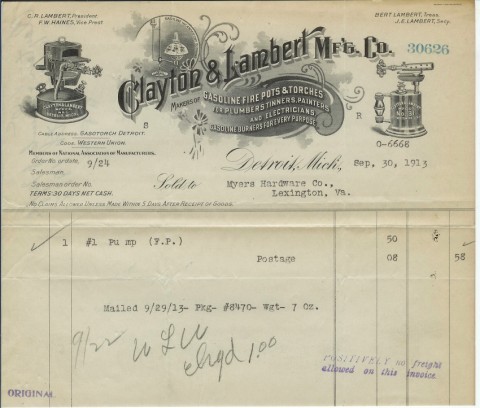 C.R. LAMBERT, President
F.W. HAINES, Vice Prest
BERT LAMBERT, Treas.
J.E. LAMBERT, Secy.
Clayton & Lambert M'f'g. Co.
30626
MAKERS OF
GASOLINE FIRE POTS & TORCHES
FOR PLUMBERS, TINNERS, PAINTERS
AND ELECTRICIANS
GASOLINE BURNERS FOR EVERY PURPOSE
CABLE ADDRESS: GASOTORCH DETROIT.
CODE WESTERN UNION.
S
R
O-6668
MEMBERS OF NATIONAL ASSOCIATION OF MANUFACTURERS.
Order No. or date, 9/24
Detroit, Mich., Sep. 30, 1913
Salesman,
Salesman order No.
Sold to Myers Hardware Co.,
TERMS: 30 DAYS NET CASH.
Lexington, Va.
NO CLAIMS ALLOWED UNLESS MADE WITHIN 5 DAYS AFTER RECEIPT OF GOODS.
1 #1 Pump (F.P.) 50
Postage 08 58
Mailed 9/29/13- Pkg- #8470- Wgt- 7 Oz.
9/22
chgd 1.00
POSITIVELY no freight
allowed on this invoice.
ORIGINAL